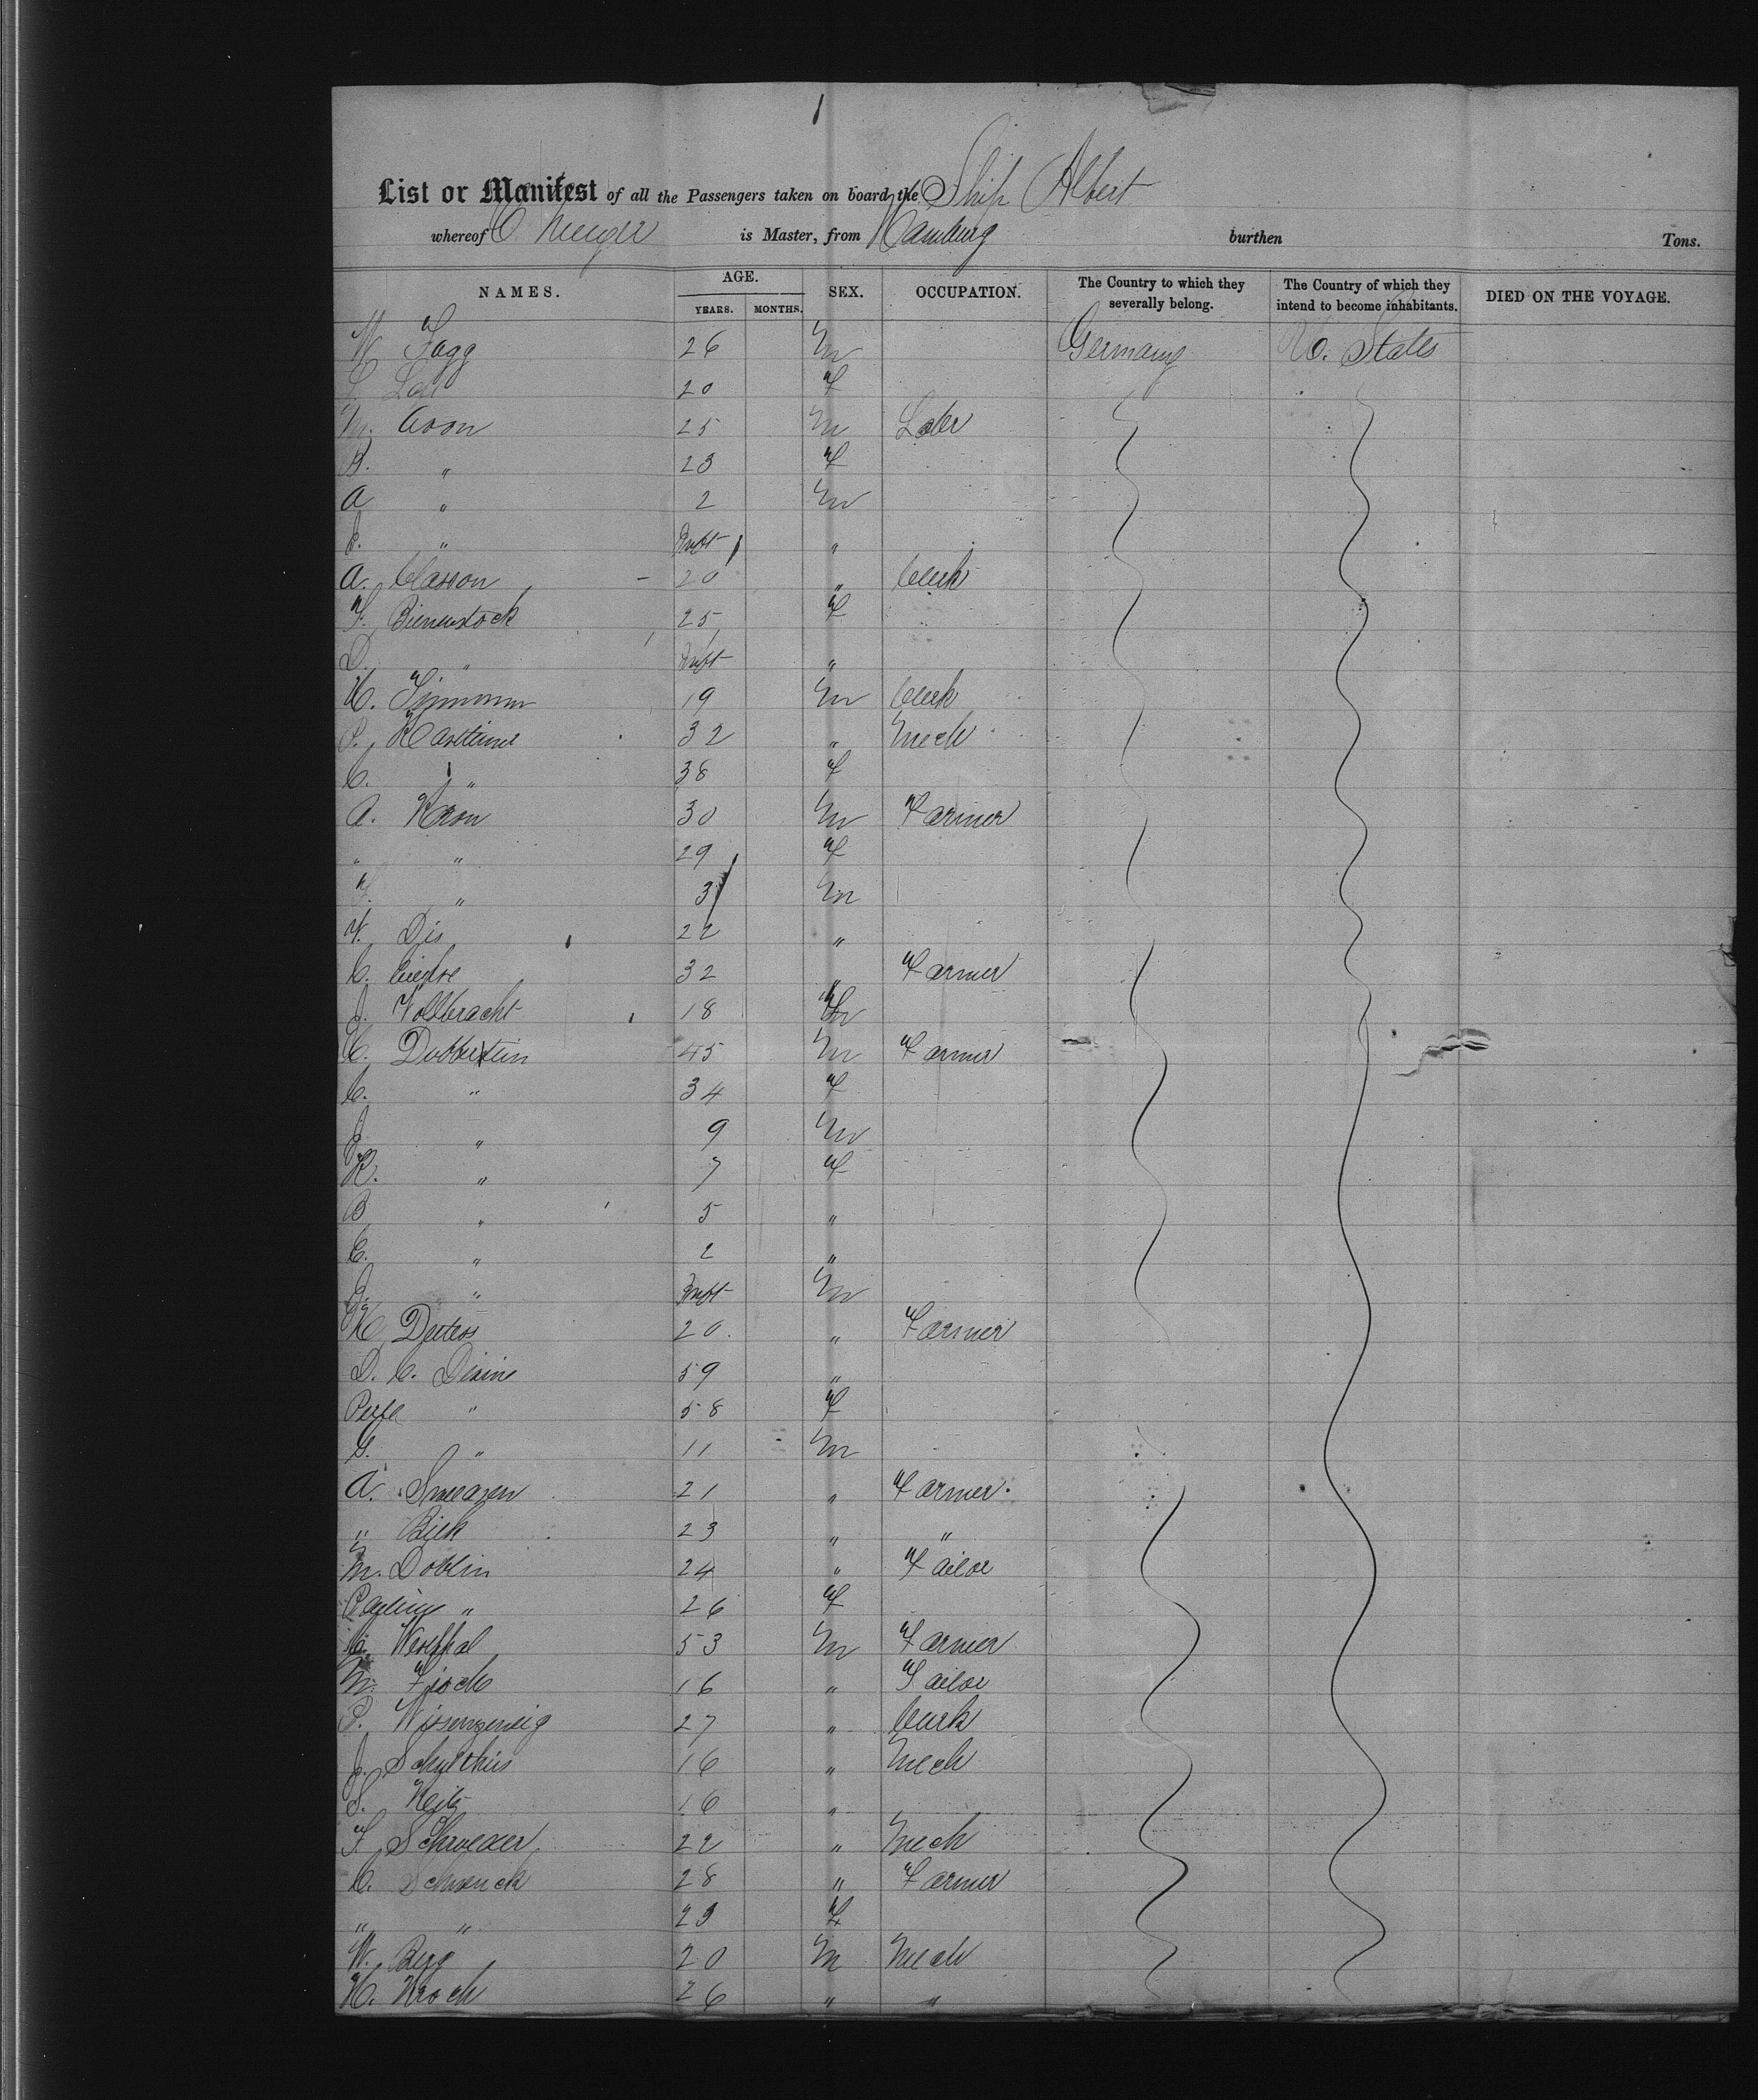 1
List or Manifest of all the Passengers taken on board the Ship Albert
whereof C. Meyer is Master, from Hamburg burthen Tons.
NAMES. AGE. YEARS. MONTHS. SEX. OCCUPATION. The Country to which they severally belong. The Country of which they intend to become inhabitants. DIED ON THE VOYAGE.
W Fagg 26 M Germany U. States
20 F
M. Coon 25 M Labr
B. " 23 F
A " 2 M
J. " Inft "
A. Classon 20 " Clerk
F. Bienenstock 25 F
D. " Inft "
H. 19 M Clerk
P. 32 " Mech
C. " 38 F
A. Kron 30 M Farmer
" " 29 F
F. " 3 M
V. Dis 22 "
C. 32 " Farmer
J. Vollbracht 18 M
C. Dobbertein 45 M Farmer
C. " 34 F
J. " 9 M
H. " 7 F
B " 5 "
C. " 2 "
J. " Inft M
H. Deters 20. " Farmer
D. C. Divine 59 "
" 58 F
G. " 11 M
A. 21 " Farmer.
" Bick 23 " "
M. Doblin 24 " Tailor
Pauline " 26 F
C. Westphal 53 M Farmer
M. Fisch 16 " Tailor
P. Wissenzweig 27 " Clerk
J. Schulthis 16 " Mech
S. Neitz 16 "
F. 22 " Mech
C. Schwenck 28 " Farmer
" " 29 F
W. Berg 20 M Mech
H. Kroch 26 " "